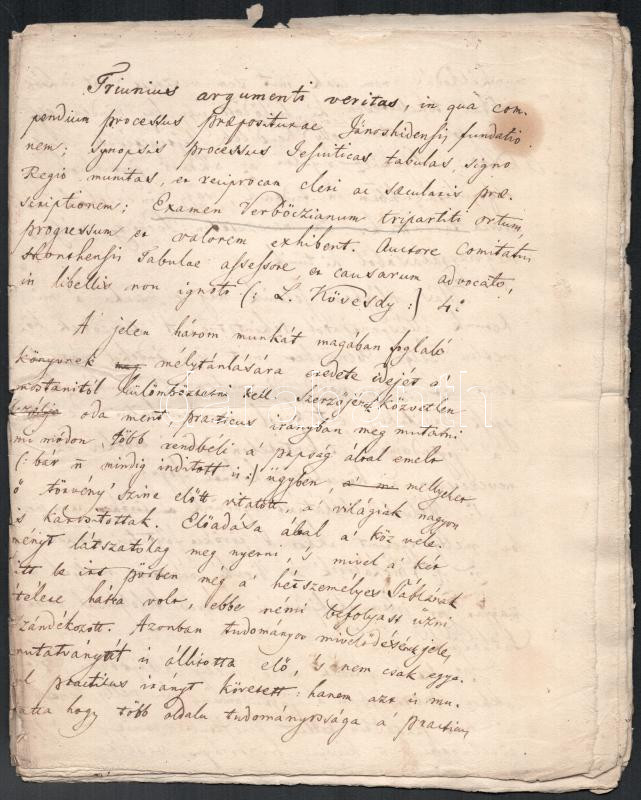 Triunius argumenti veritas, in qua com-
pendium processus praepositurae Jánoshidensis fundatio
nem; synopsis processus Jesuiticas tabulas, signo
Regio munitas, et reciprocam cleri ac saecularis prae-
scriptionem; Examen Verbőczianum tripartiti ortum,
progressum et valorem exhibent. Auctore Comitatus
Tabulae assessore, et causarum advocato,
in libellis non ignoto (: L. Kövesdy :) 4o
A' jelen három munkát magában foglaló
könyvnek méltánlására eredete idejét a'
mostanitól külömböztetni kell. Szerzőjének közvetlen
oda ment, practicus irányban meg mutatni
mi módon több rendbéli a' papság által emelt
(: bár n mindig indított is :) ügyben, a' mellyeket
ő törvény szine előtt vitatott, a' világiak nagyon
is károsítottak. Előadása által a' köz véle
ményt látszatólag meg nyerni, 's mivel a' két
itt le irt pörben még a' hétszemélyes Táblának
itélete hátra volt, ebbe némi befolyást űzni
szándékozott. Azonban tudományos mivelődésének jele,
mutatványát is állította elő, 's nem csak egye-
practicus irányt követett: hanem azt is mu-
tatta hogy több oldalu tudományossága a' practicus